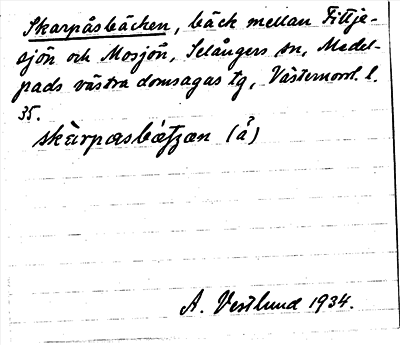 Skarpåsbäcken, bäck mellan Fittje-
sjön och Mosjön, Selångers sn, Medel-
pads västra domsagas tg, Västernorrl. l.
35.
(å)
A. Vestlund 1934.